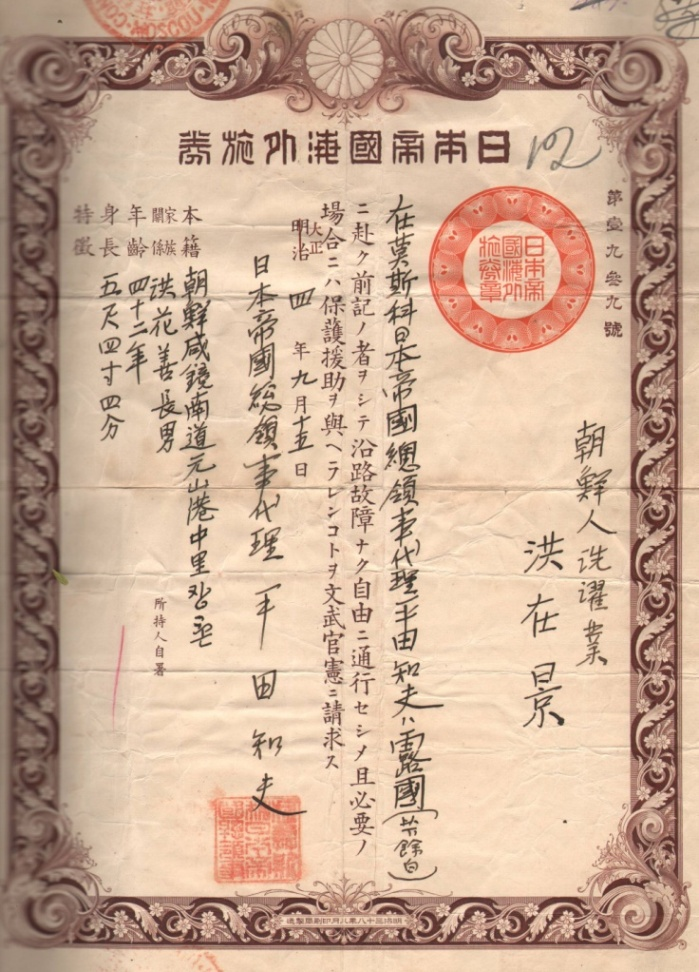 日本帝國海外旅券
102
第壹九叁九號
日本帝
國海外
旅券章
朝鮮人洗濯業
洪在景
在莫斯科日本帝國總領事代理平田知夫ハ露國(以下餘白)
ニ赴ク前記ノ者ヲシテ沿路故障ナク自由ニ通行セシメ且必要ノ
場合ニハ保護援助ヲ與ヘラレンコトヲ文武官憲ニ請求ス
大正
明治 四年九月十五日
日本帝國總領事代理 平田知夫
本籍 朝鮮咸鏡南道元山港中里
家族關係 洪花善長男
年齡 四十二年
身長 五尺四寸四分
特徵
所持人自署